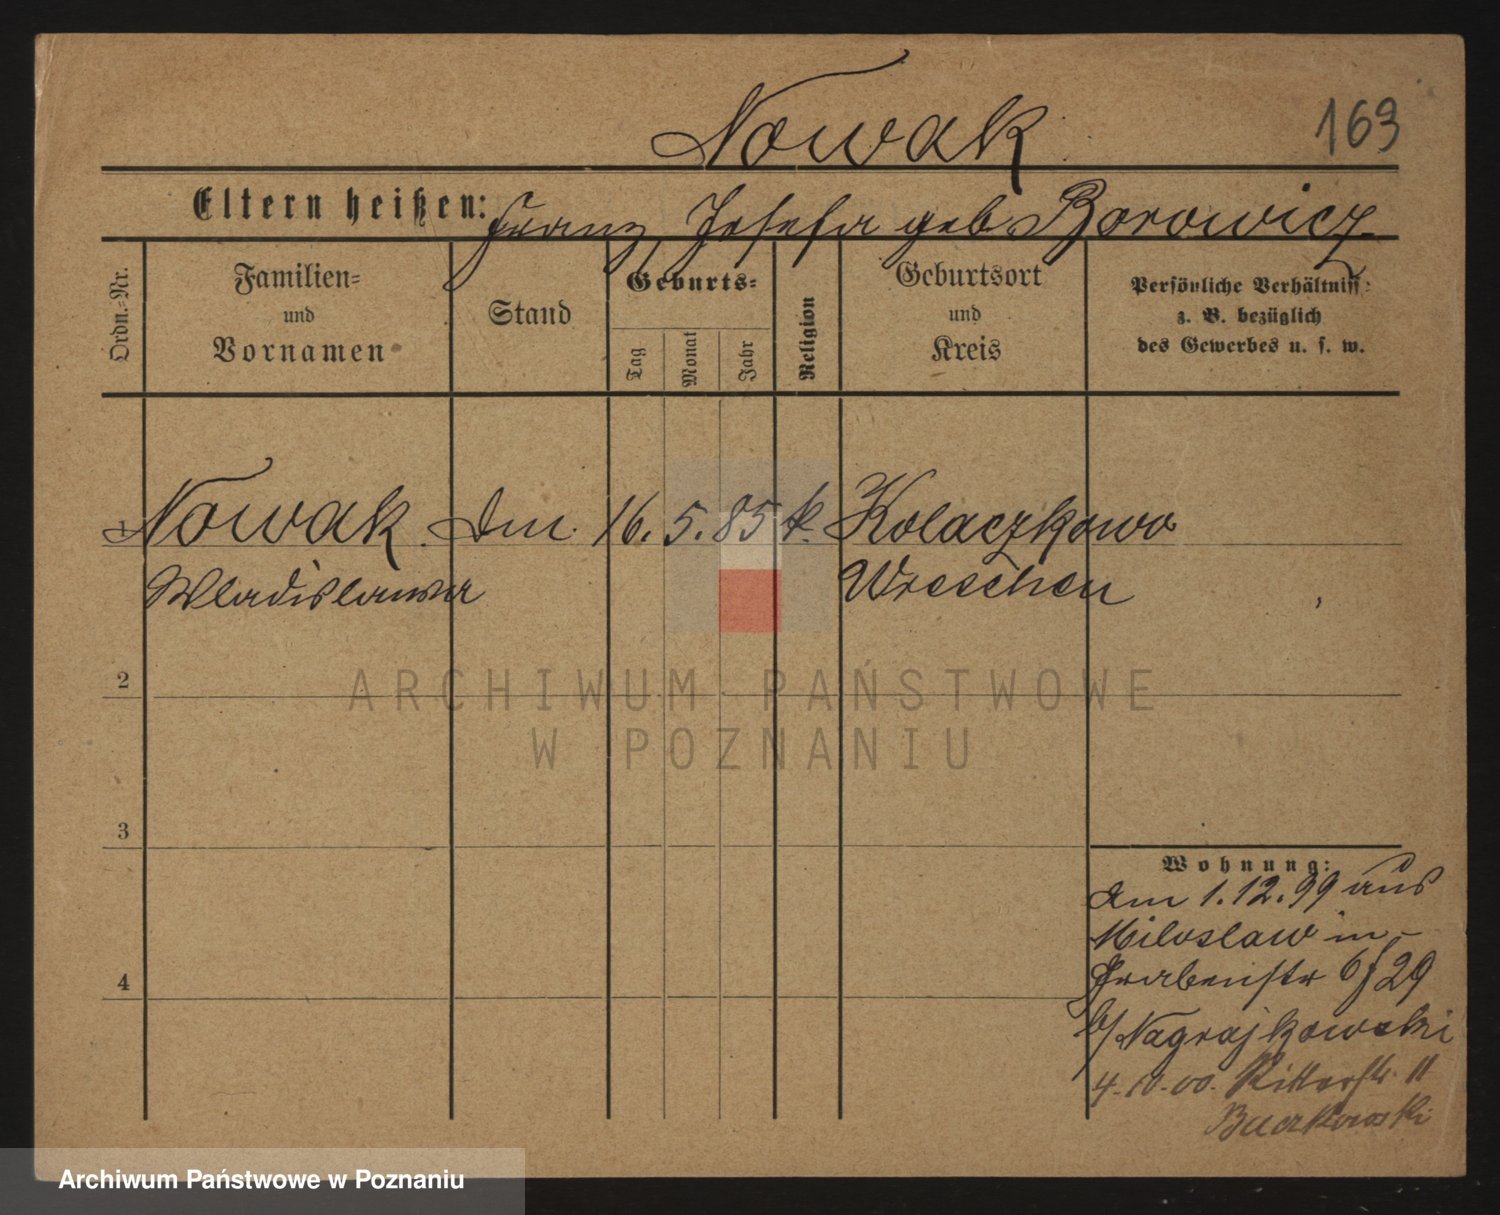 Nowak
163
Eltern heißen: Franz, Josefa geb Borowicz
Ordn.-Nr.
Familien-
und
Vornamen
Stand
Geburts-
Tag
Monat
Jahr
Religion
Geburtsort
und
Kreis
Persönliche Verhältniss:
z. B. bezüglich
des Gewerbes u. s. w.
1 Nowak 16. 5. 85 k. Kolaczkowo
Wladislawa Wreschen
2
3
4
Wohnung:
Am 1.12.99 aus
Miloslaw in
Grabenstr 6 f 29
b/ Nagrajkowski
4.10.00. Ritterstr. 11
Buczkowski
ARCHIWUM PAŃSTWOWE
W POZNANIU
Archiwum Państwowe w Poznaniu